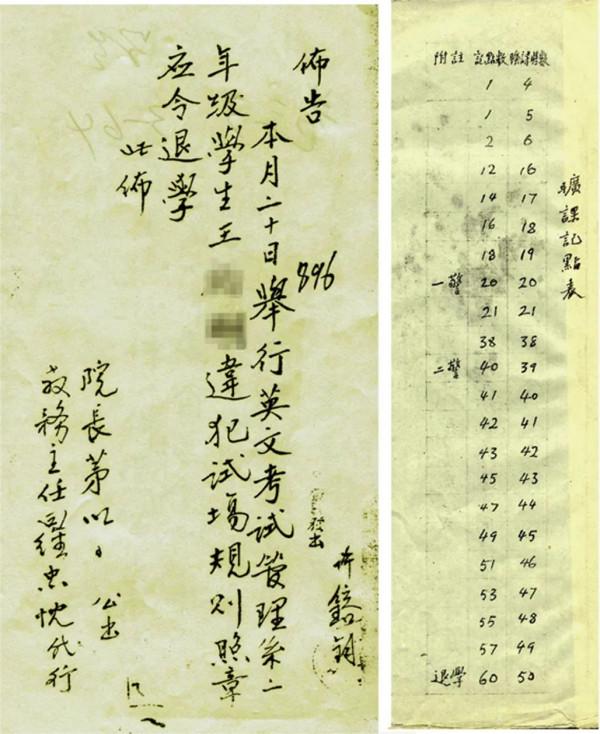 佈告
896
本月二十日舉行英文考試管理系二
年級學生王 違犯試場規則照章
应令退學
此佈
院長茅以 公出
教務主任羅忠忱代行
發出
曠課記點表
附註 記點數 曠課時數
1 4
1 5
2 6
12 16
14 17
16 18
18 19
一警 20 20
21 21
38 38
二警 40 39
41 40
42 41
43 42
45 43
47 44
49 45
51 46
53 47
55 48
57 49
退學 60 50